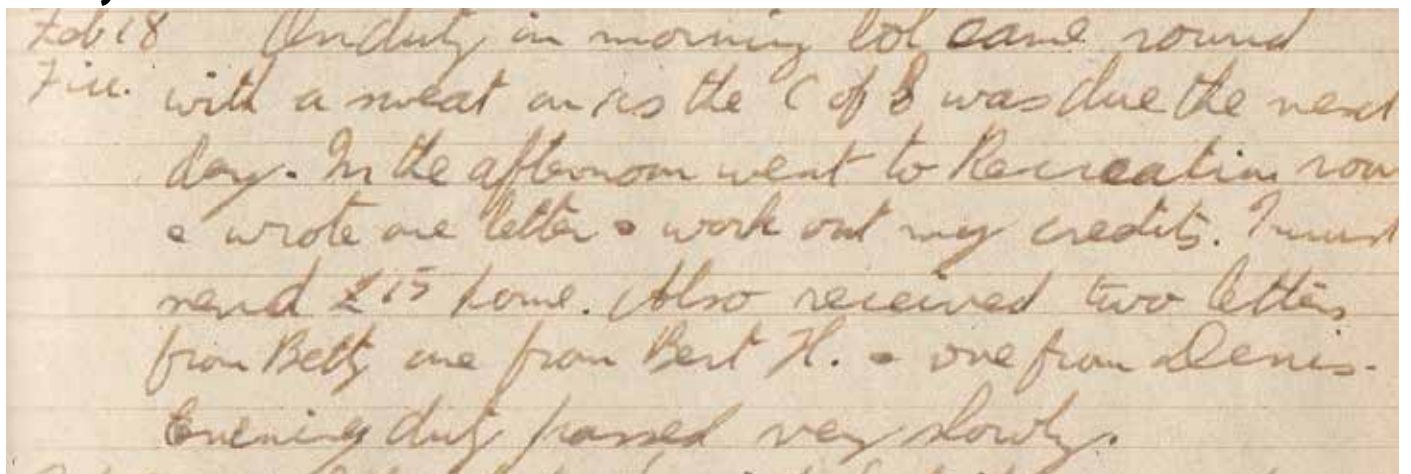 Feb 18 On duty in morning Col came round
Fri. with a sweat on as the C of S was due the next
day. In the afternoon went to Recreation room
& wrote one letter & work out my credits. I must
send £15 home. Also received two letters
from Betty one from Bert H. & one from Denis.
Evening duty passed very slowly.